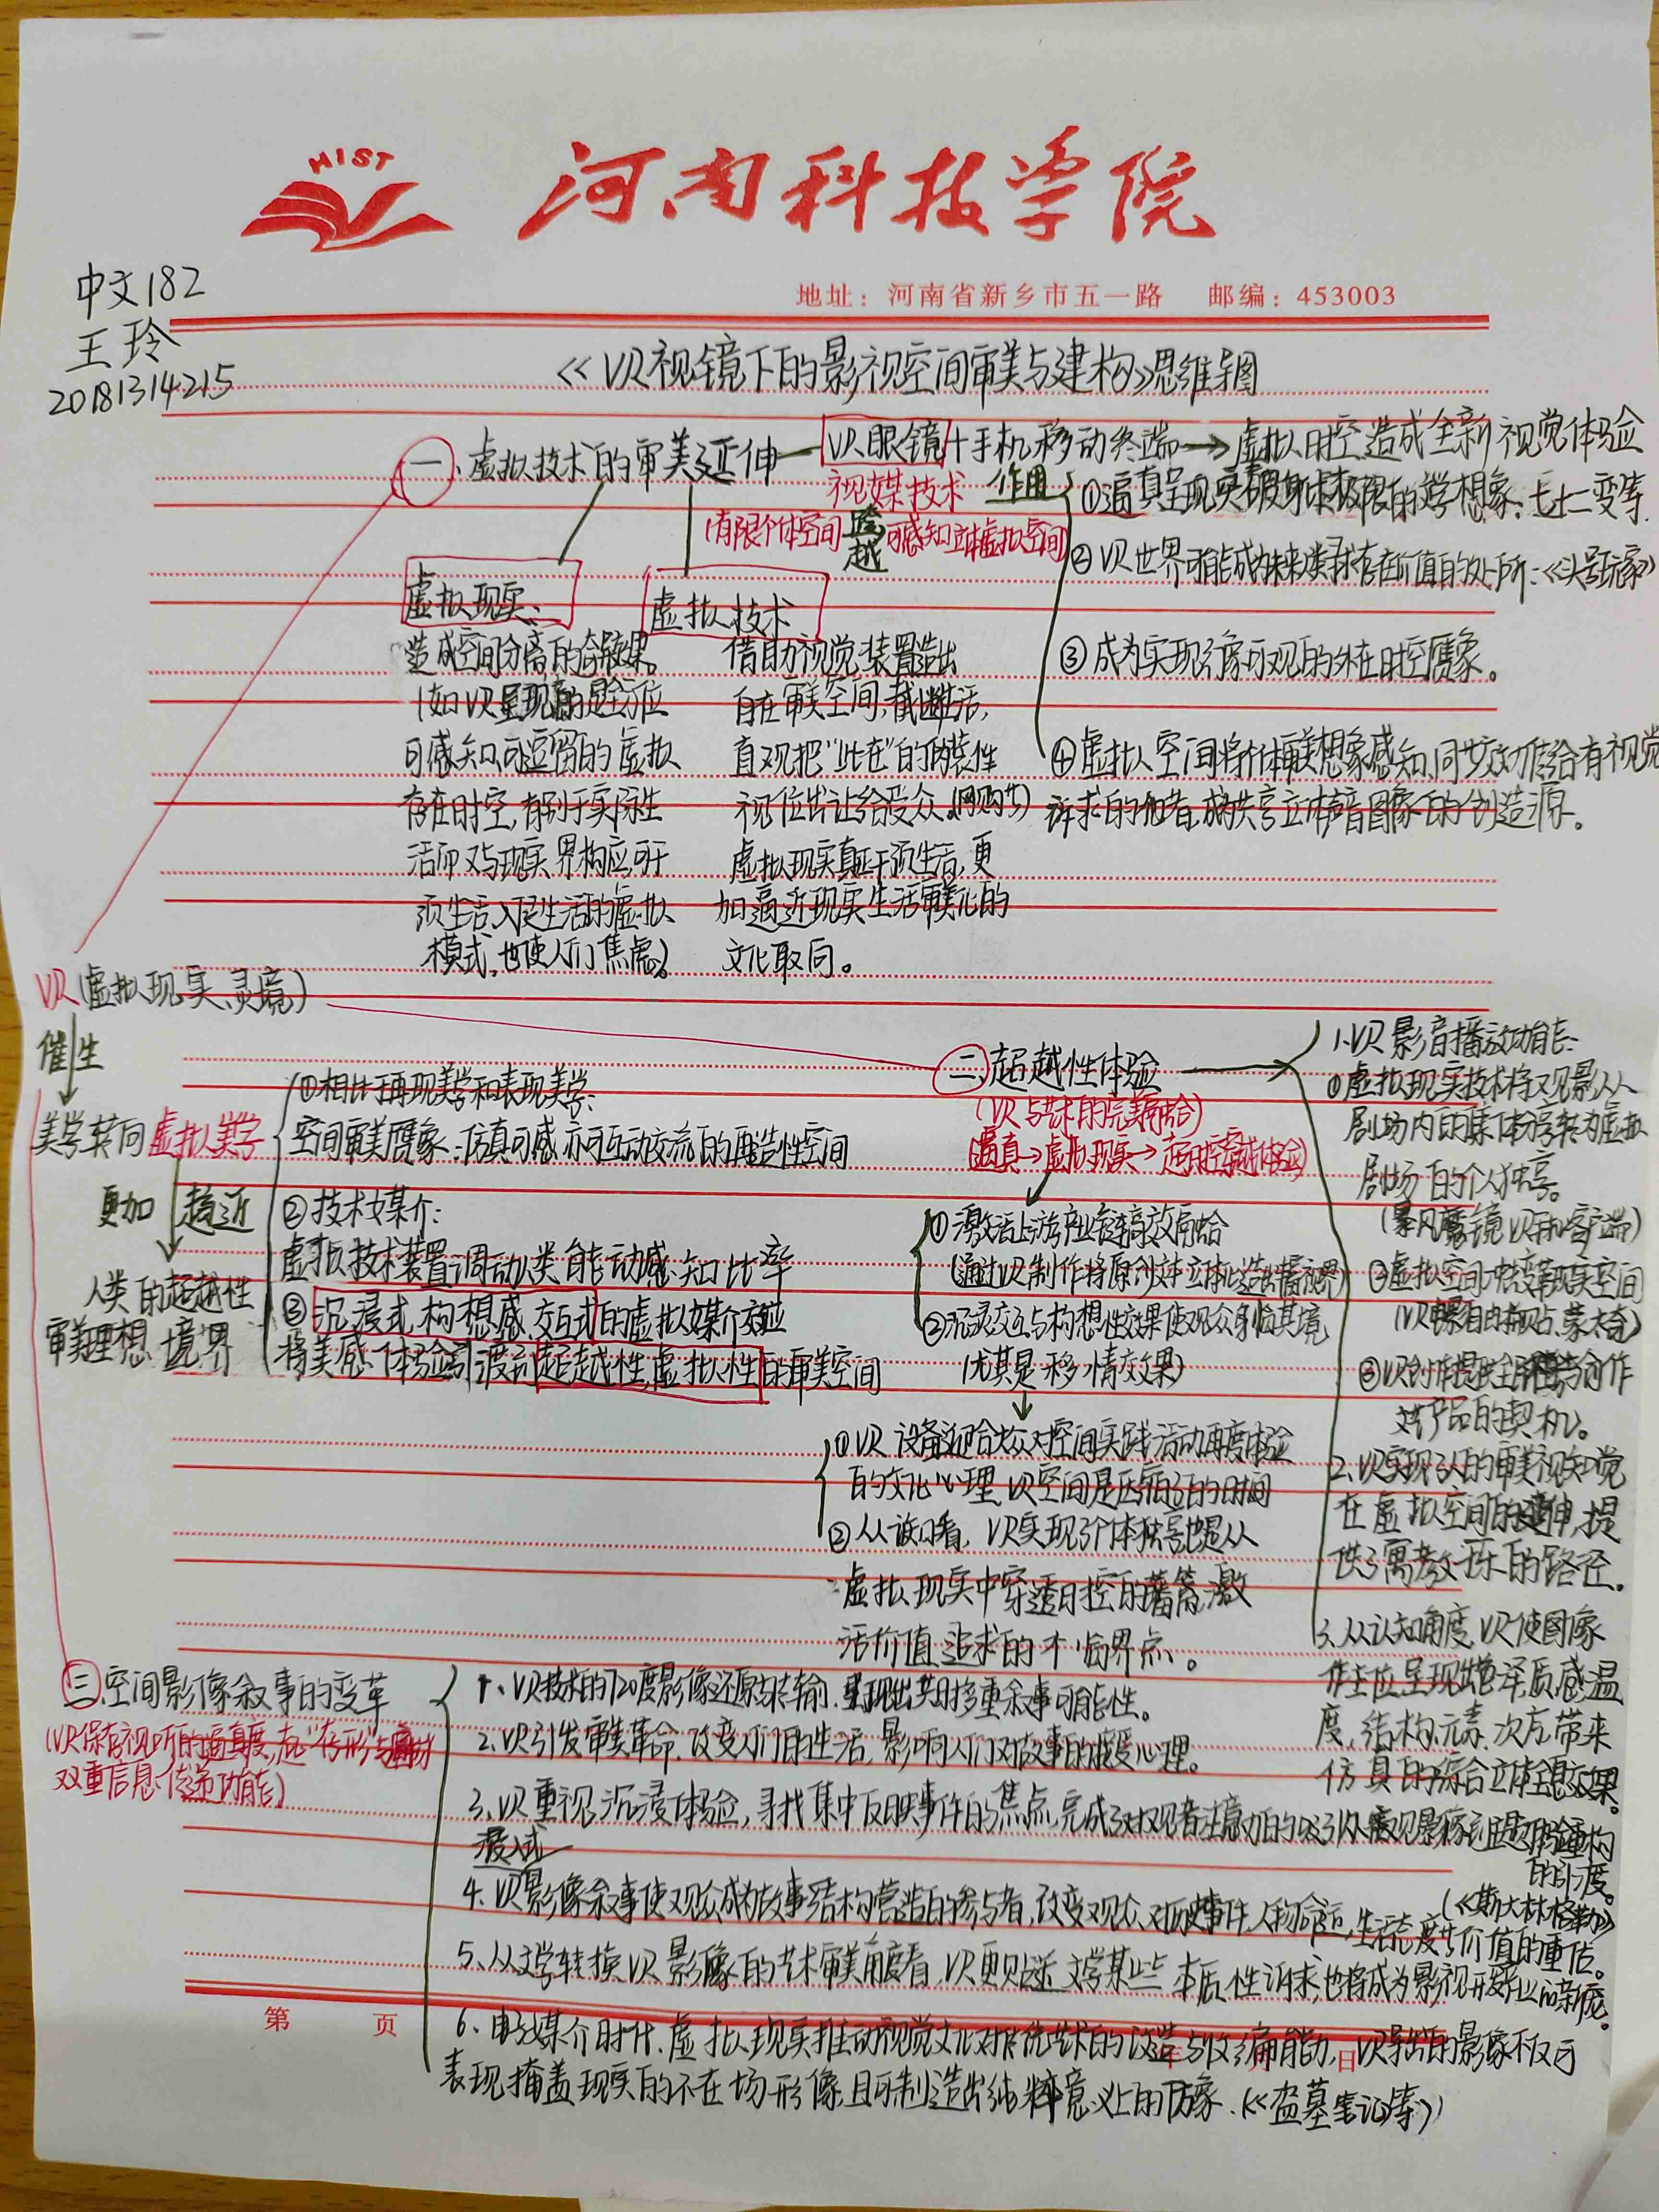 HIST
河南科技学院
地址：河南省新乡市五一路 邮编：453003
中文182
王玲
20181314215
《VR视镜下的影视空间审美与建构》思维导图
一、虚拟技术的审美延伸
VR眼镜+手机移动终端→虚拟时空造成全新视觉体验
视媒技术
(有限个体空间 跨越 可感知立体虚拟空间)
作用
①逼真呈现突破身体极限的文学想象：七十二变等.
②VR世界可能成为未来人类寻求存在价值的处所：《头号玩家》
③成为实现影像可观的外在时空赝像。
④虚拟空间将个体审美想象感知同步传给有视觉
诉求的他者,成为共享立体声音图像的创造源。
虚拟现实：
造成空间分离的奇异效果。
(如VR呈现的是全方位
可感知可逗留的虚拟
存在时空,有别于实际生
活而又与现实界构应,可干
预生活、入侵生活的虚拟
模式,也使人们焦虑)。
虚拟技术
借助视觉装置造出
自在审美空间,截断生活,
直观把“此在”的伪装性
视位出让给受众。(网购节)
虚拟现实真正干预生活,更
加逼近现实生活审美化的
文化取向。
VR(虚拟现实、灵境)
催生
美学转向虚拟美学
更加 趋近
人类的超越性
审美理想境界
①相比再现美学和表现美学：
空间审美赝象：仿真可感亦可互动交流的再造性空间
②技术媒介：
虚拟技术装置调动人类能动感知比率
③沉浸式、构想感、交互式的虚拟媒介效应
将美感体验引渡到超越性、虚拟性的审美空间
二、超越性体验
(VR与艺术的完美融合)
(逼真→虚拟现实→超时空穿越体验)
①激活上游产业链高效融合
(通过VR制作将原创文本立体化造出播视界)
②沉浸交互与构想性效果使观众身临其境
(尤其是移情效果)
①VR设备迎合大众对空间实践活动再度体验
的文化心理,VR空间是压缩了的时间
②从认知看,VR实现了个体独享也是从
虚拟现实中穿透时空的藩篱,激
活价值追求的不临界点。
1.VR影音播放功能：
①虚拟现实技术将观影从
剧场内的集体分享转为虚拟
剧场的个人独享。
(暴风魔镜VR手机客户端)
②虚拟空间始变革现实空间
(VR电影自由视点、蒙太奇)
③VR创作提供全民参与创作
文艺产品的契机。
2.VR实现了人的审美视知觉
在虚拟空间的延伸,提
供了寓教于乐的路径。
3.从认知角度,VR使图像
作主位呈现出色泽、质感、温
度,结构元素、次左带来
仿真的综合立体全息效果。
三、空间影像叙事的变革
(VR保存视听的逼真度,
双重信息传递功能)
1、VR技术的720度影像还原与传输,呈现出共时多重叙事可能性。
2、VR引发审美革命,改变人们的生活,影响人们对故事的接受心理。
3、VR重视沉浸体验,寻找集中反映事件的焦点,完成了对观者注意力的吸引
从观影像到主题的重构
的引渡。
(《斯大林格勒》)
浸入式
4.VR影像叙事使观众成为故事结构营造的参与者,改变观众对历史事件、人物命运,生活态度与价值的重估。
5、从文学转换VR影像的艺术审美角度看,VR更贴近文学某些本质性诉求,也将成为影视开发产业的新宠。
6、电子媒介时代,虚拟现实推动视觉文化对传统艺术的改造与收编能力,VR导出的影像不仅可
表现掩盖现实的不在场形像,且可制造出纯粹意义上的仿象.(《盗墓笔记》等)
第 页
日